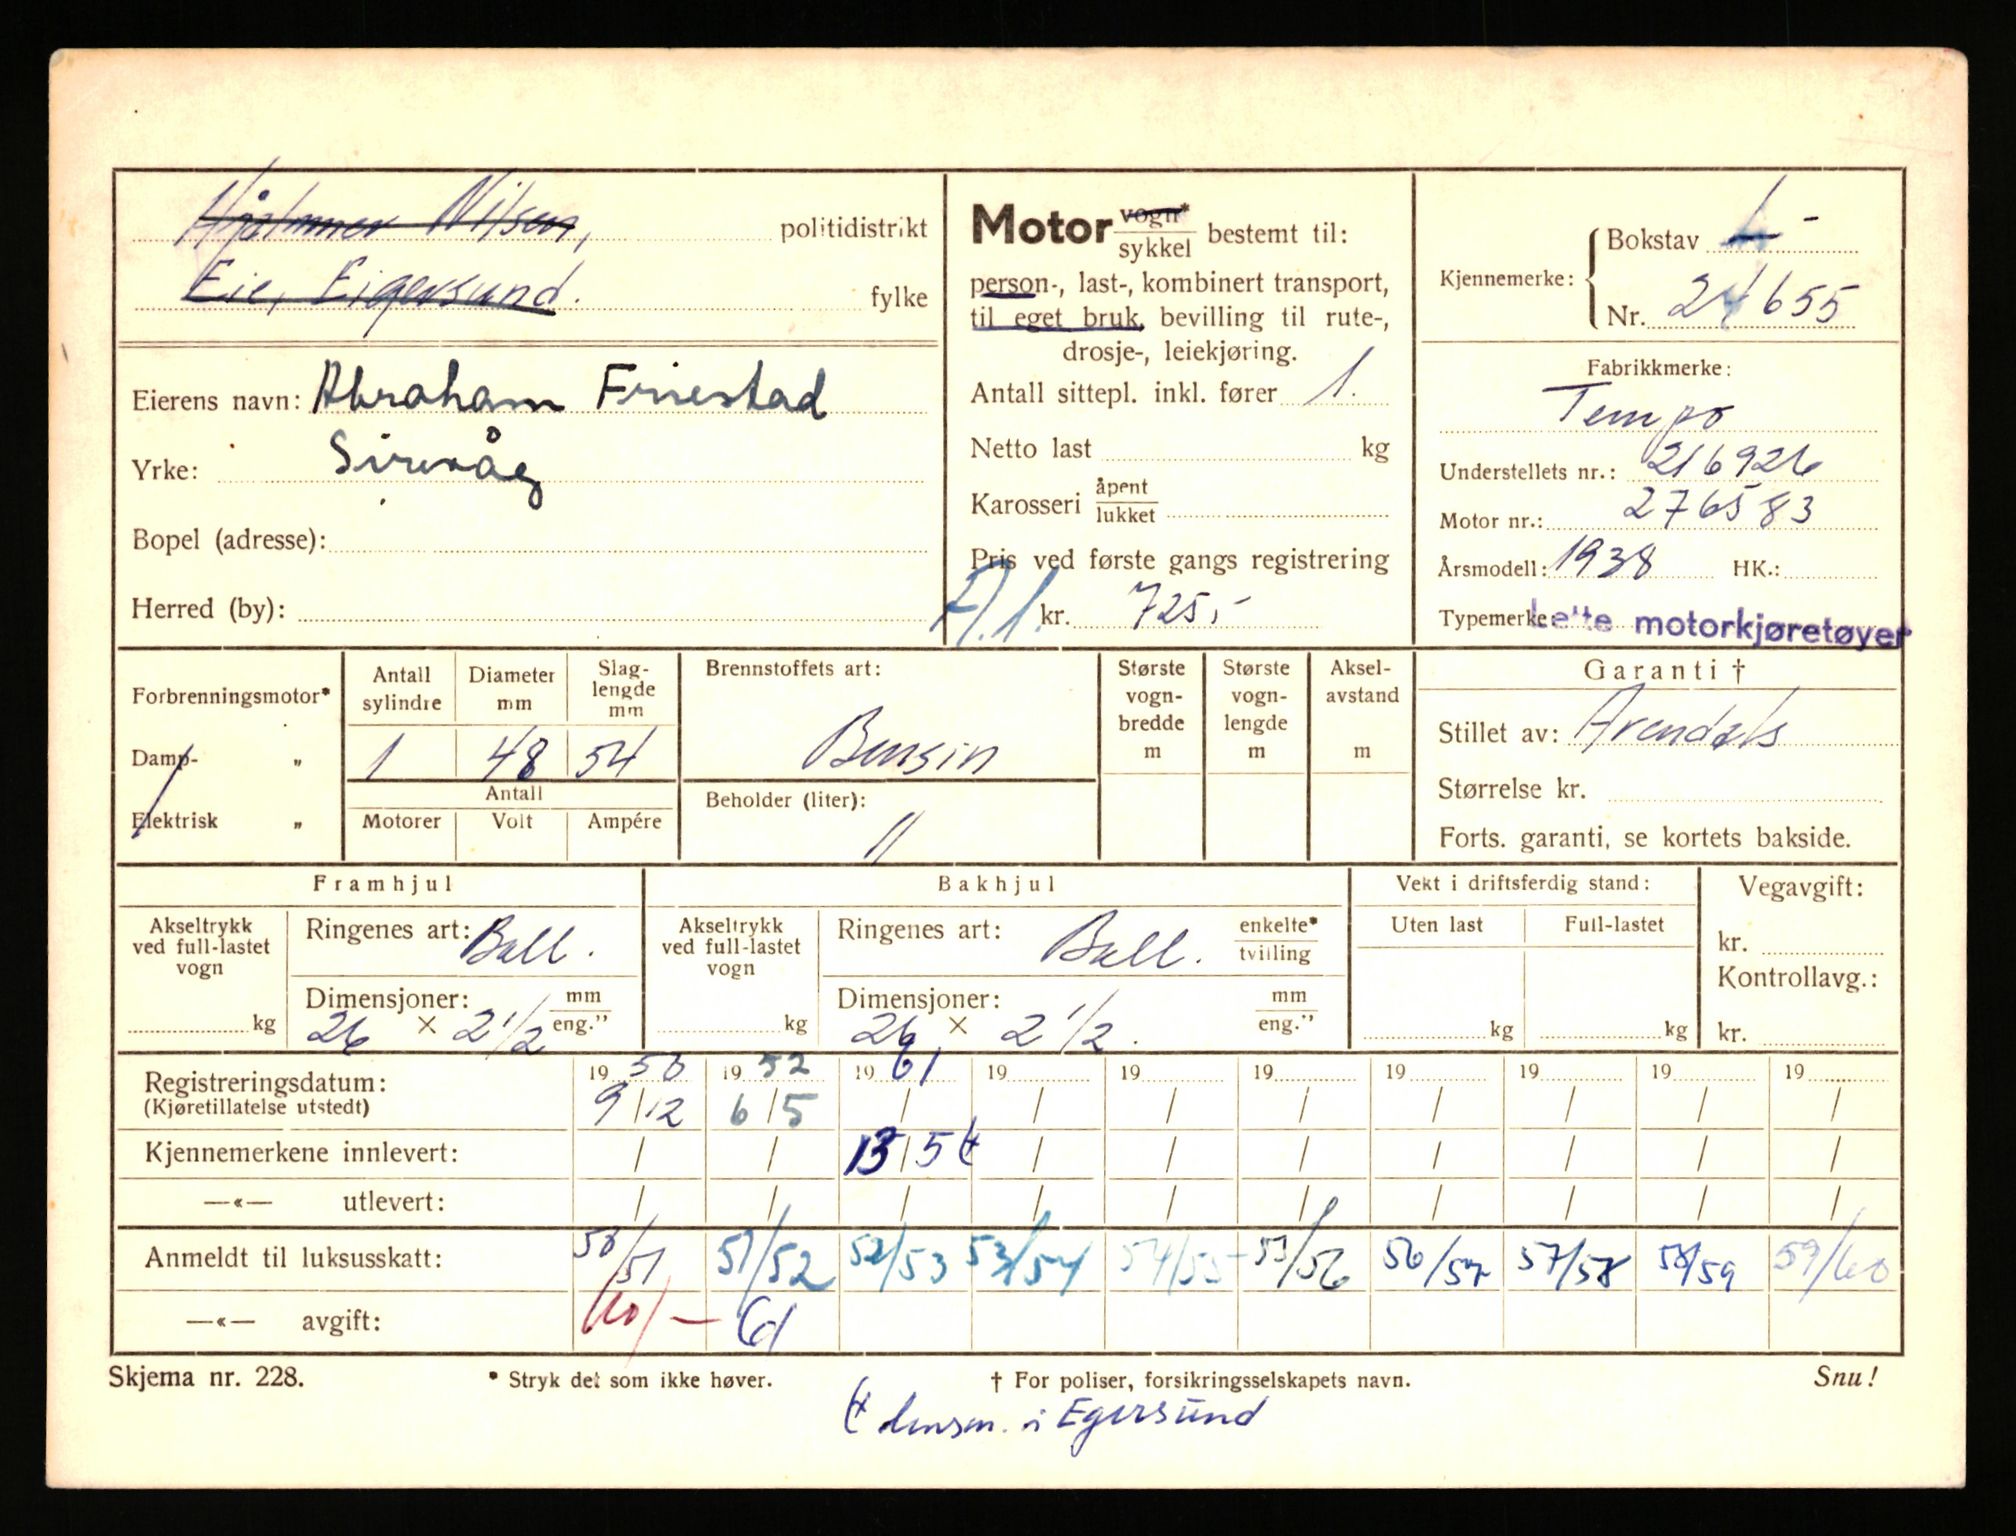 Hjalmer Nilsen, politidistrikt
Eie, Eigersund. fylke
Eierens navn: Abraham Friestad
Yrke: Sirevåg
Bopel (adresse):
Herred (by):
Motor vogn*
sykkel bestemt til:
person-, last-, kombinert transport,
til eget bruk, bevilling til rute-,
drosje-, leiekjøring.
Antall sittepl. inkl. fører 1.
Netto last kg
Karosseri åpent
lukket
Pris ved første gangs registrering
A.1. kr. 725,-
Kjennemerke: Bokstav L-
Nr. 24655
Fabrikkmerke:
Tempo
Understellets nr.: 216926
Motor nr.: 276583
Årsmodell: 1938 HK.:
Typemerke: Lette motorkjøretøyer
Forbrenningsmotor*
Damp- „
Elektrisk „
Antall sylindre Diameter mm Slag-lengde mm
1 48 54
Antall
Motorer Volt Ampére
Brennstoffets art:
Bensin
Beholder (liter):
11
Største vogn-bredde m
Største vogn-lengde m
Aksel-avstand m
Garanti †
Stillet av: Arendals
Størrelse kr.
Forts. garanti, se kortets bakside.
Framhjul
Akseltrykk ved full-lastet vogn
kg
Ringenes art: Ball.
Dimensjoner: mm
26 × 2 1/2 eng.”
Bakhjul
Akseltrykk ved full-lastet vogn
kg
Ringenes art: Ball. enkelte*
tvilling
Dimensjoner: mm
26 × 2 1/2. eng.”
Vekt i driftsferdig stand:
Uten last Full-lastet
kg kg
Vegavgift:
kr.
Kontrollavg.:
kr.
Registreringsdatum: 19 50 19 52 19 61 19 19 19 19 19 19 19
(Kjøretillatelse utstedt) 9/12 6/5 / / / / / / / /
Kjennemerkene innlevert: / / 13/5 / / / / / / /
—«— utlevert: / / / / / / / / / /
Anmeldt til luksusskatt: 50/51 51/52 52/53 53/54 54/55 55/56 56/57 57/58 58/59 59/60
—«— avgift: 60/— 61
Skjema nr. 228. * Stryk det som ikke høver. † For poliser, forsikringsselskapets navn. Snu!
lensm. i Egersund